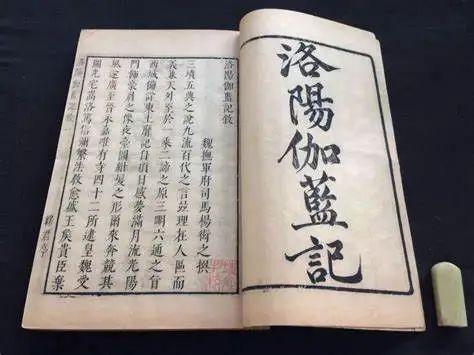 洛陽伽藍記
洛陽伽藍記敘
魏撫軍府司馬楊衒之撰
三墳五典之說九流百代之言竝理在人區而
義兼天外至於一乘二諦之原三明六通之旨
西域備詳東土靡記自頂日感夢滿月流光陽
門飾豪眉之像夜臺圖紺髮之形爾來奔競其
風遂廣至晉永嘉唯有寺四十二所逮皇魏受
圖光宅嵩洛篤信彌繁法教愈盛王矦貴臣棄
洛陽伽藍記敘
綠君亭